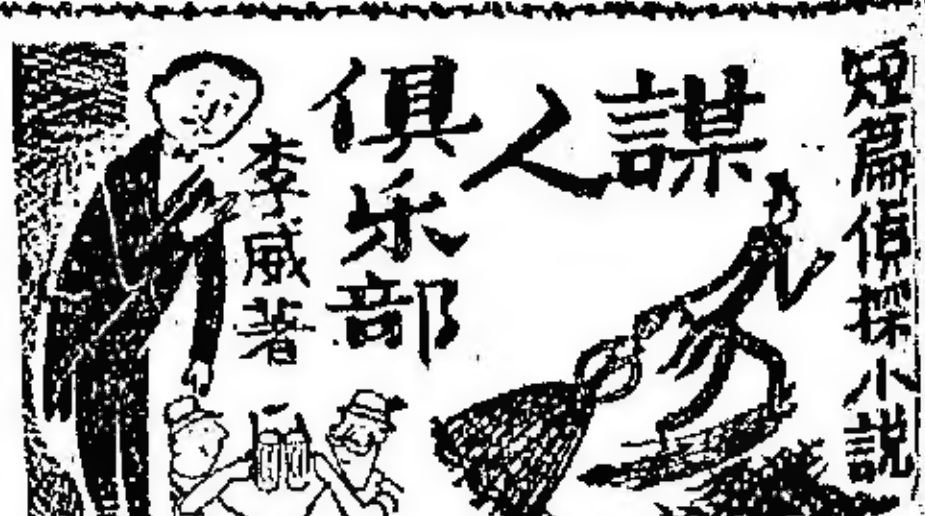 短篇偵探小説
謀人
俱乐部
李威著